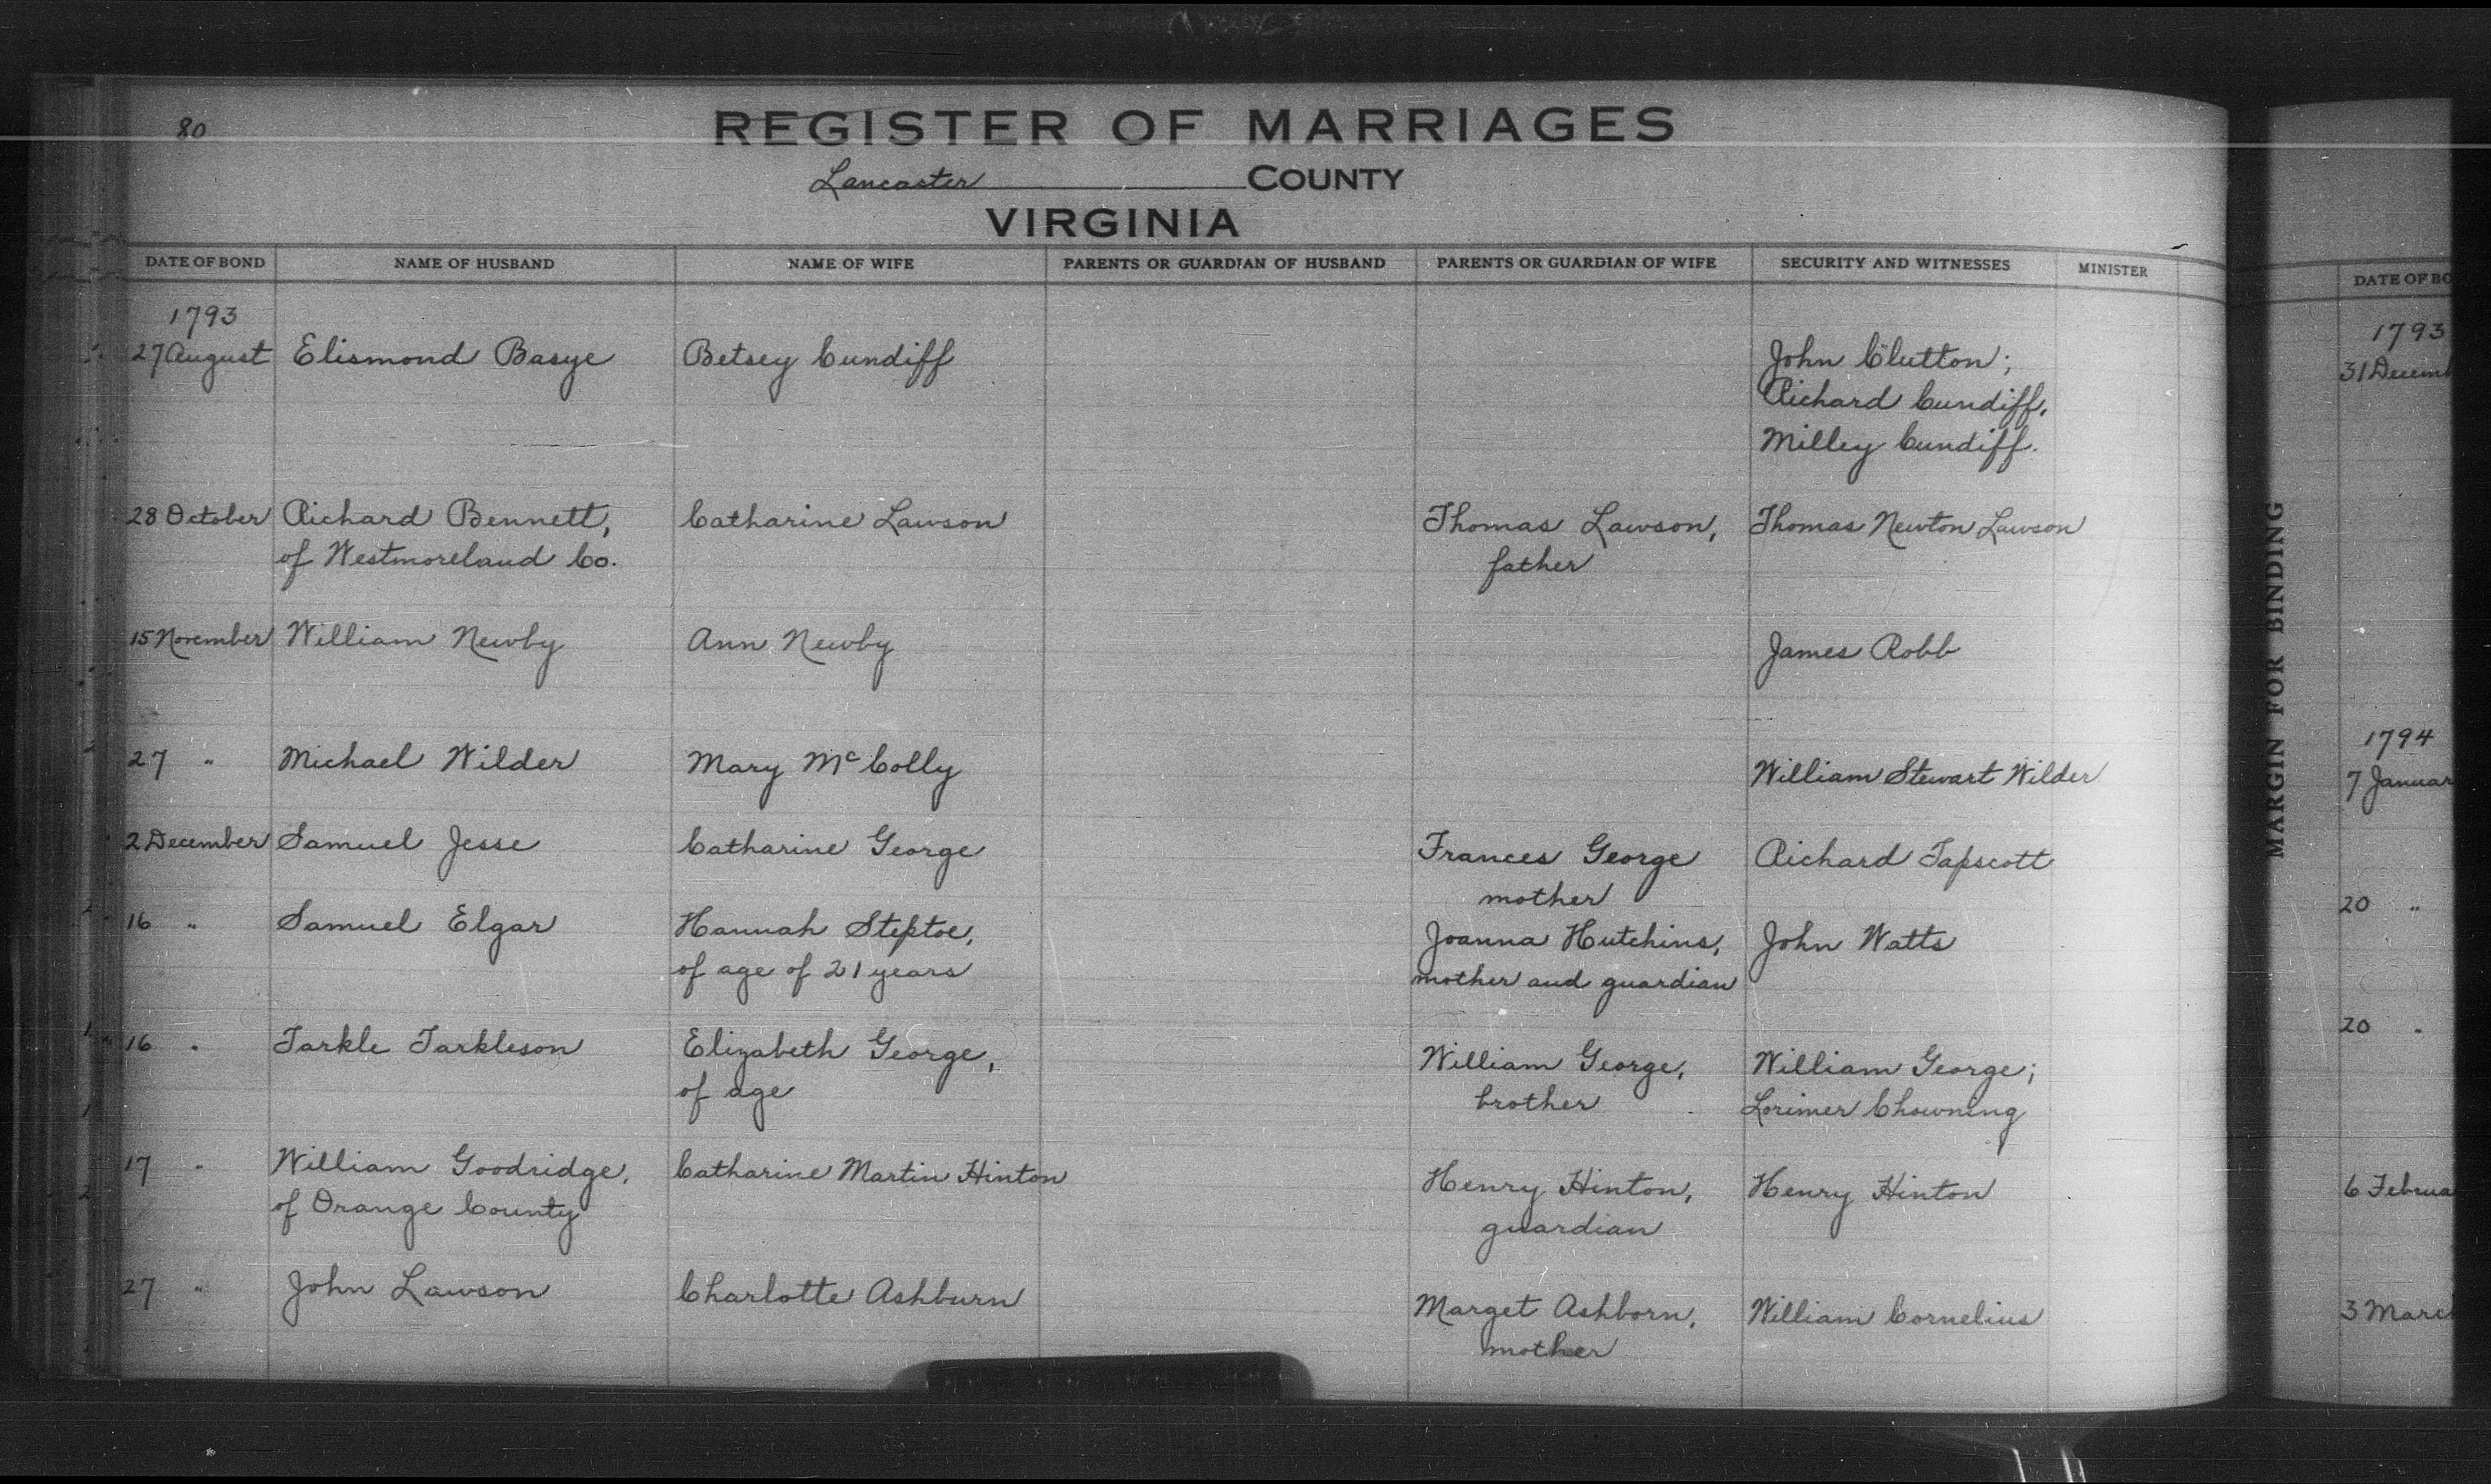 80
REGISTER OF MARRIAGES
Lancaster COUNTY
VIRGINIA
DATE OF BOND NAME OF HUSBAND NAME OF WIFE PARENTS OR GUARDIAN OF HUSBAND PARENTS OR GUARDIAN OF WIFE SECURITY AND WITNESSES MINISTER
1793
27 August Elismond Basye Betsey Cundiff John Clutton;
Richard Cundiff,
Milley Cundiff.
28 October Richard Bennett, Catharine Lawson Thomas Lawson, Thomas Newton Lawson
of Westmoreland Co. father
15 November William Newby Ann Newby James Robb
27 " Michael Wilder Mary McColly William Stewart Wilder
2 December Samuel Jesse Catharine George Frances George Richard Tapscott
mother
16 " Samuel Elgar Hannah Steptoe, Joanna Hutchins, John Watts
of age of 21 years mother and guardian
16 " Tarkle Tarkleson Elizabeth George, William George, William George;
of age brother Lorimer Chowning
17 " William Goodridge, Catharine Martin Hinton Henry Hinton, Henry Hinton
of Orange County guardian
27 " John Lawson Charlotte Ashburn Marget Ashborn, William Cornelius
mother
MARGIN FOR BINDING
DATE OF BO
1793
31 Decemb
1794
7 Januar
20 "
20 "
6 Februa
3 March